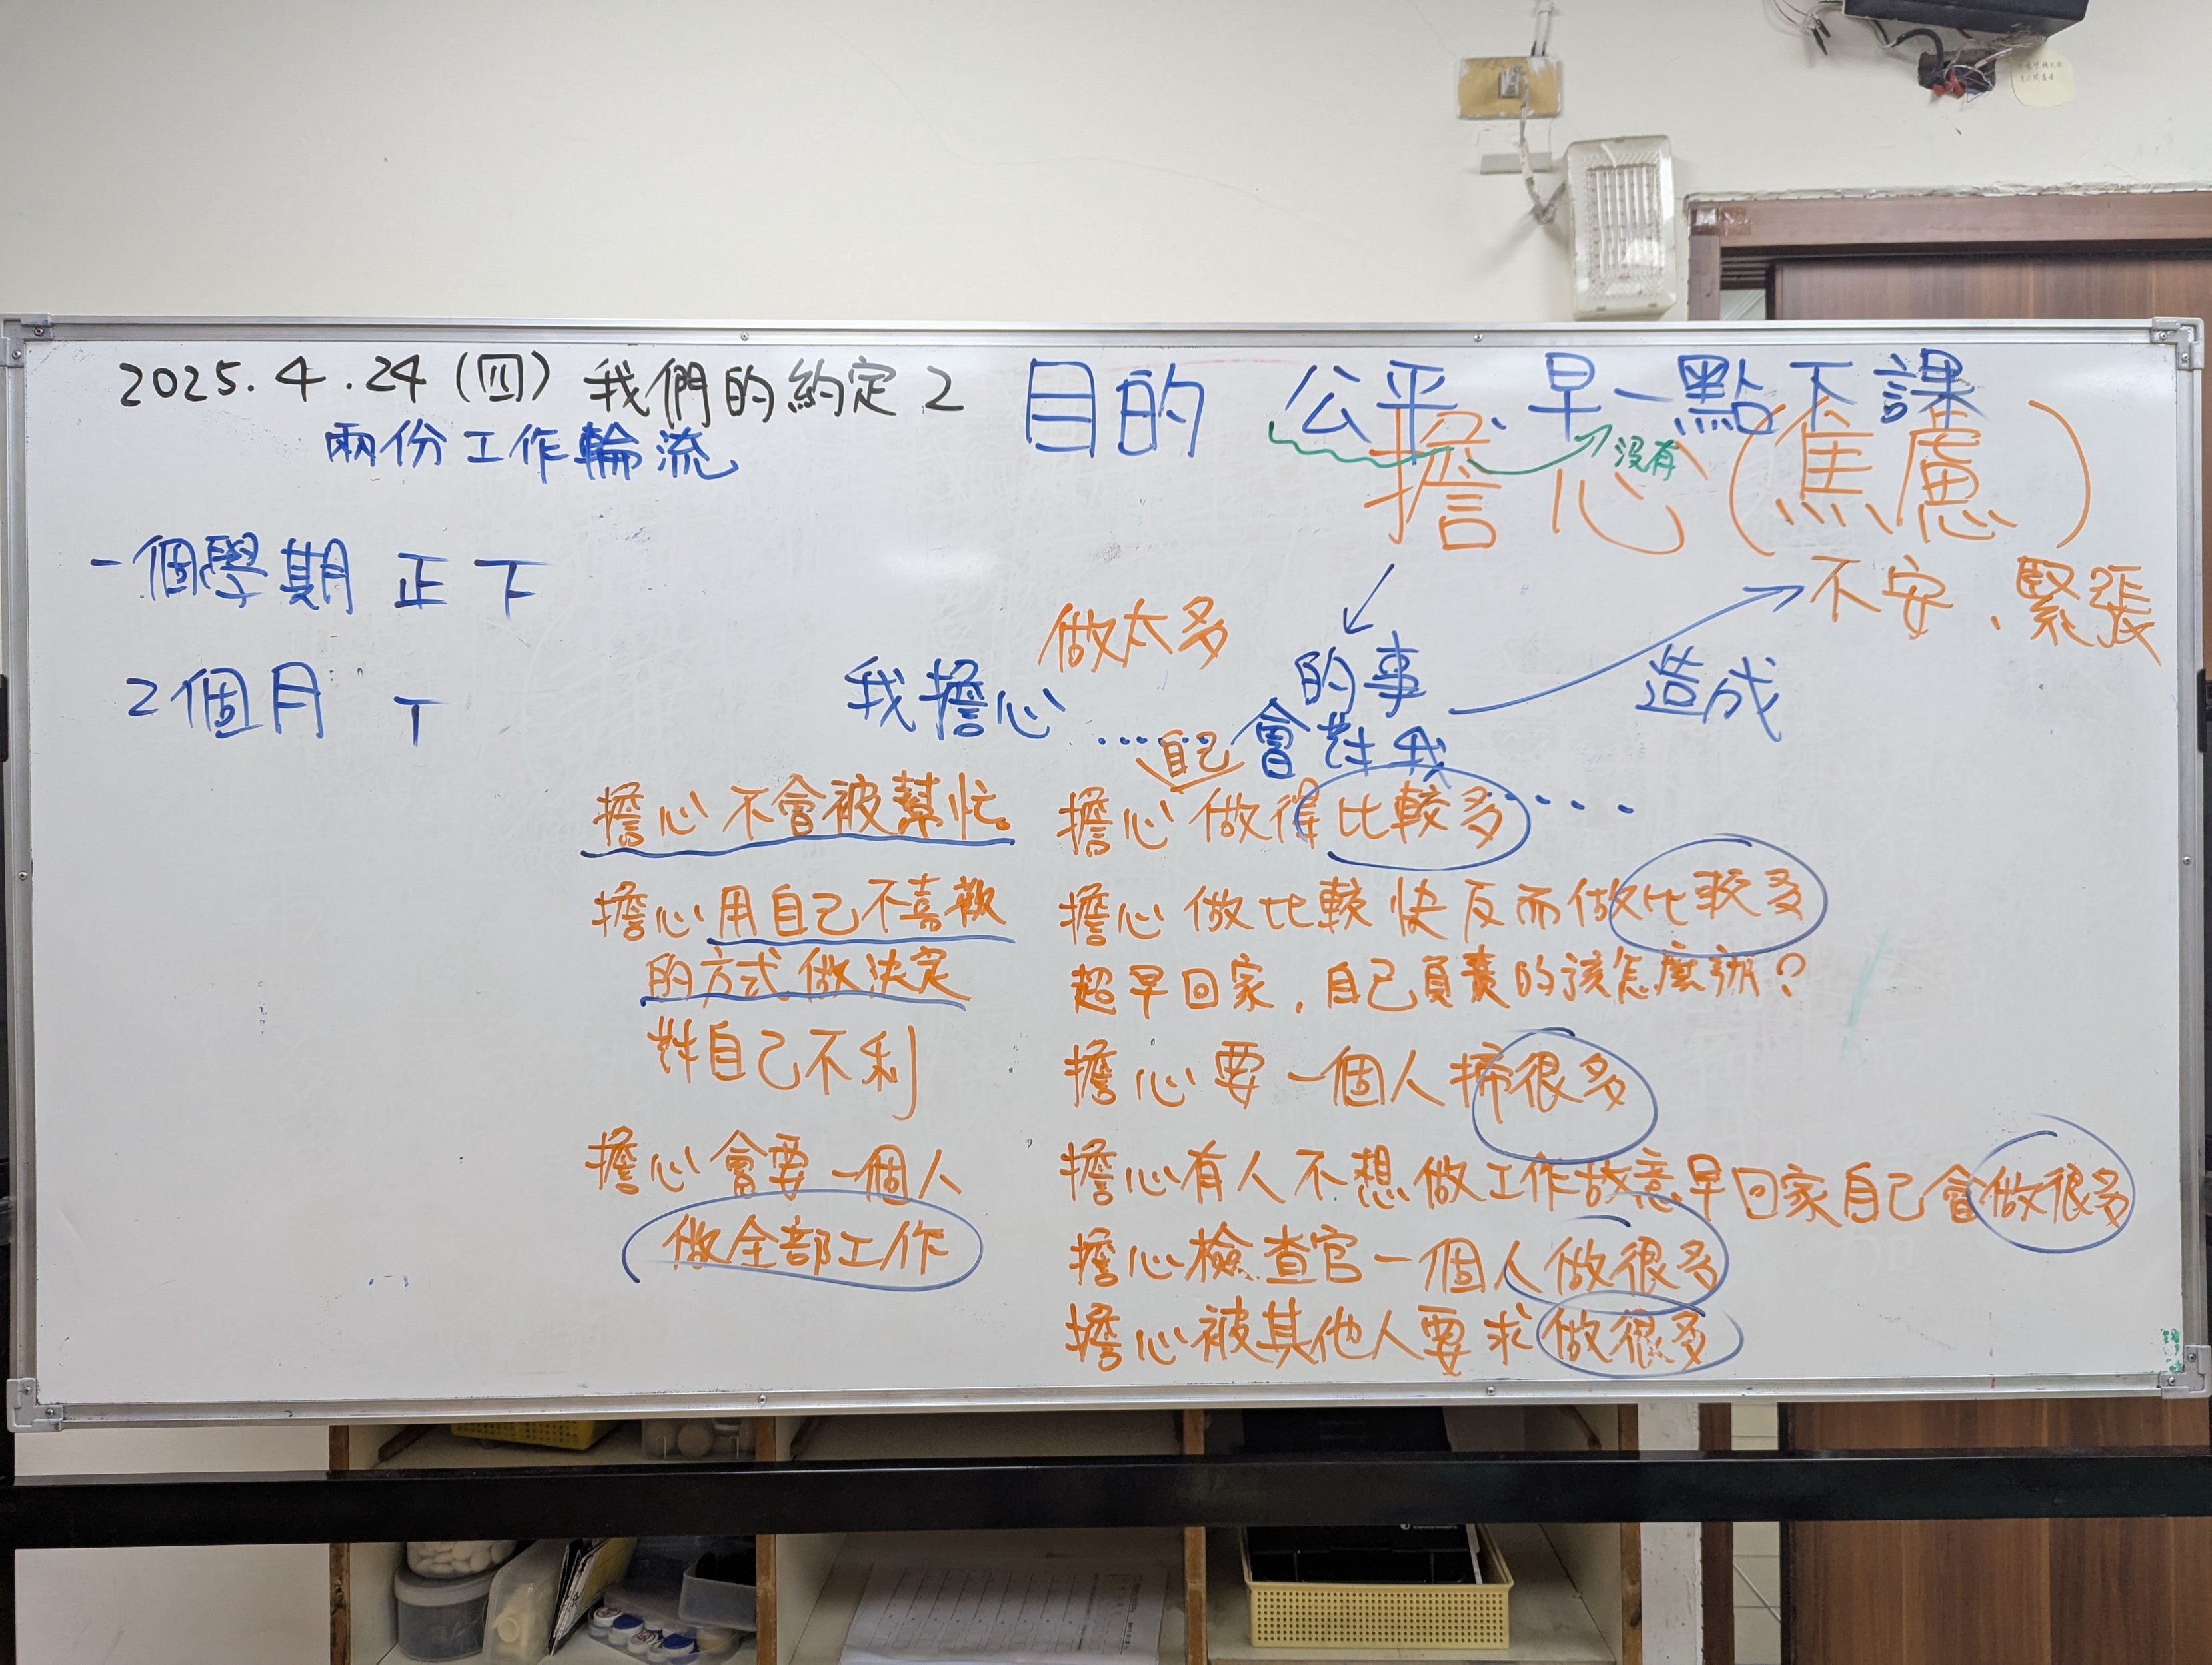 2025.4.24(四) 我們的約定2
兩份工作輪流
目的 公平、早一點下課
沒有
擔心(焦慮)
不安、緊張
一個學期 正下
2個月 丅
做太多
我擔心……的事
會對我……
造成
擔心不會被幫忙。
擔心用自己不喜歡
的方式做決定
對自己不利
擔心會要一個人
做全部工作
自己
擔心做得比較多
擔心做比較快反而做比較多
超早回家,自己負責的該怎麼辦?
擔心要一個人掃很多
擔心有人不想做工作故意早回家自己會做很多
擔心檢查官一個人做很多
擔心被其他人要求做很多